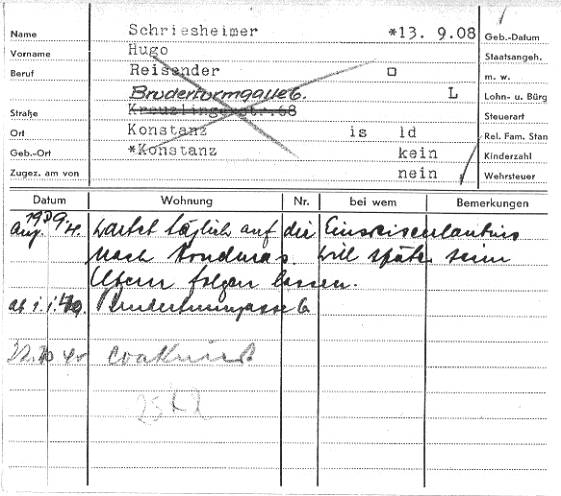 Name Schriesheimer *13. 9.08 Geb.-Datum
Vorname Hugo Staatsangeh.
Beruf Reisender m. w.
Bruderturmgasse 6. L Lohn- u. Bürg
Straße Kreuzlingerstr.68 Steuerart
Ort Konstanz is ld Rel. Fam. Stan
Geb.-Ort *Konstanz kein Kinderzahl
Zugez. am von nein Wehrsteuer
Datum Wohnung Nr. bei wem Bemerkungen
wartet täglich auf die Einreiseerlaubnis
nach Honduras. Will später seine
Eltern folgen lassen.
ab 1.1.40. Bruderturmgasse 6
22.10.40